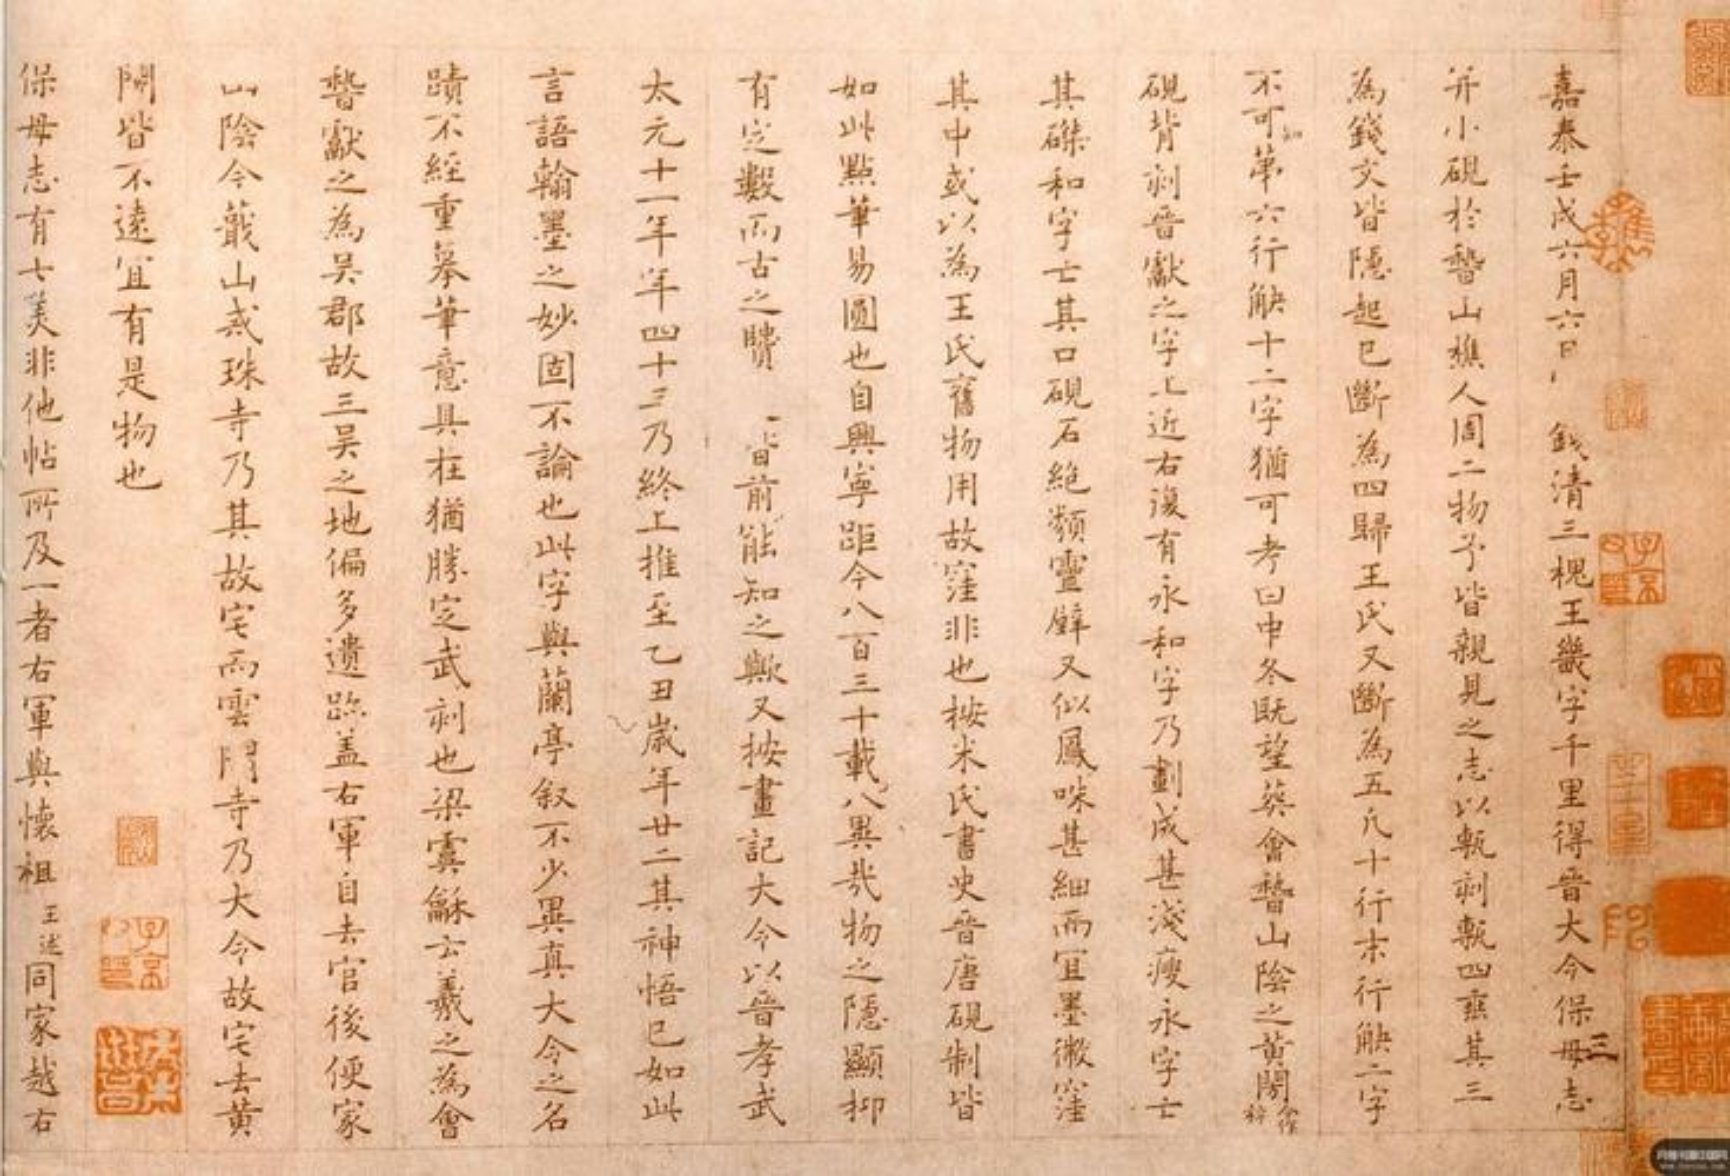 嘉泰壬戌六月六日 錢清三槐王畿字千里得晉大令保母志
并小硯於稽山樵人周二物予皆親見之志以甎刻甎四垂其三
為錢文皆隱起已斷為四歸王氏又斷為五凡十行末行缺二字
不可知第六行缺十二字猶可考曰中冬既望葬會稽山陰之黃閍
硯背刻晉獻之字上近右復有永和字乃劃成甚淺瘦永字亡
其磔和字亡其口硯石絕類靈壁又似鳳咮甚細而宜墨微窪
其中或以為王氏舊物用故窪非也按米氏書史晉唐硯制皆
如此點筆易圓也自興寧距今八百三十載異哉物之隱顯抑
有定數而古之賢 皆前能知之歟又按畫記大令以晉孝武
太元十一年年四十三乃終上推至乙丑歲年廿二其神悟已如此
言語翰墨之妙固不論也此字與蘭亭叙不少異真大令之名
蹟不經重摹筆意具在猶勝定武刻也梁虞龢云羲之為會
稽獻之為吳郡故三吳之地偏多遺跡盖右軍自去官後便家
山陰今蕺山戒珠寺乃其故宅而雲門寺乃大令故宅去黃
閍皆不遠宜有是物也
保母志有七美非他帖所及一者右軍與懷祖王述同家越右